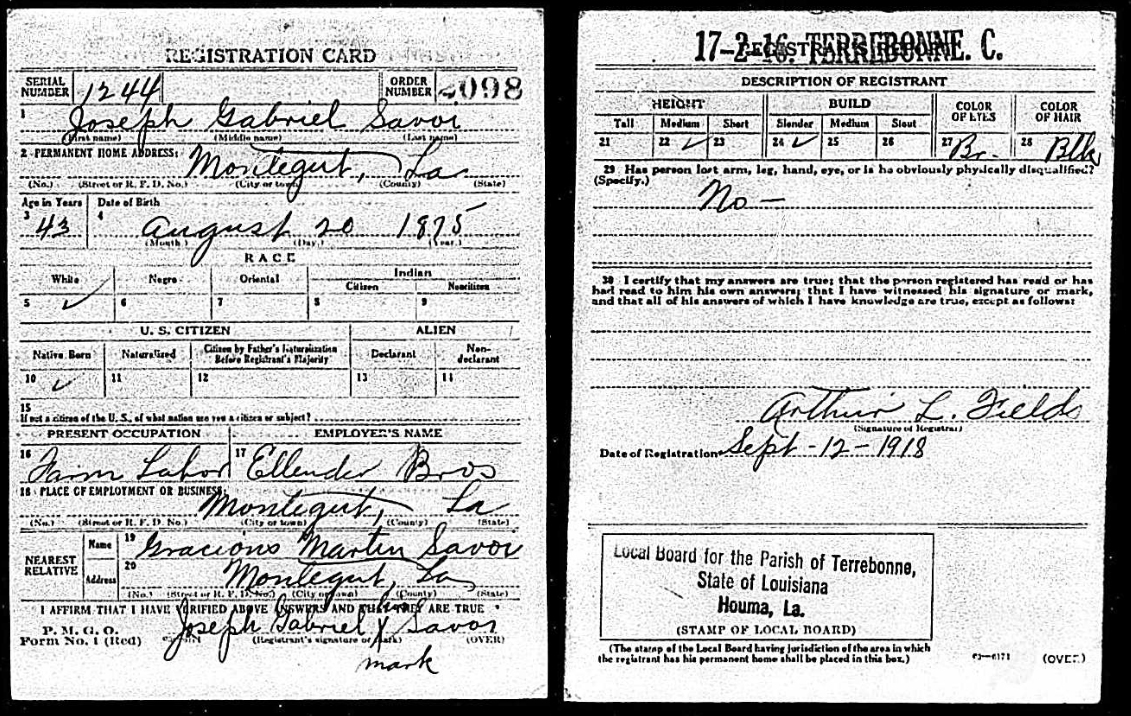 REGISTRATION CARD
SERIAL NUMBER 1244 ORDER NUMBER 2098
1 Joseph Gabriel Savoi
(First name) (Middle name) (Last name)
2 PERMANENT HOME ADDRESS: Montegut, La
(No.) (Street or R. F. D. No.) (City or town) (County) (State)
Age in Years Date of Birth
3 43 4 August 20 1875
(Month.) (Day.) (Year.)
RACE
White Negro Oriental Indian
Citizen Noncitizen
5 ✓ 6 7 8 9
U. S. CITIZEN ALIEN
Native Born Naturalized Citizen by Father's Naturalization Before Registrant's Majority Declarant Non-declarant
10 ✓ 11 12 13 14
15
If not a citizen of the U. S., of what nation are you a citizen or subject?
PRESENT OCCUPATION EMPLOYER'S NAME
16 Farm Labor 17 Ellender Bros
18 PLACE OF EMPLOYMENT OR BUSINESS:
Montegut, La
(No.) (Street or R. F. D. No.) (City or town) (County) (State)
NEAREST RELATIVE Name 19 Gracions Martin Savoi
Address 20 Montegut, La
(No.) (Street or R. F. D. No.) (City or town) (County) (State)
I AFFIRM THAT I HAVE VERIFIED ABOVE ANSWERS AND THAT THEY ARE TRUE
P. M. G. O.
Form No. 1 (Red) Joseph Gabriel his X Savoi
(Registrant's signature or mark) (OVER)
mark
17-2-16. TERREBONNE. C.
REGISTRAR'S REPORT
DESCRIPTION OF REGISTRANT
HEIGHT BUILD COLOR OF EYES COLOR OF HAIR
Tall Medium Short Slender Medium Stout
21 22 ✓ 23 24 ✓ 25 26 27 Br. 28 Blk
29 Has person lost arm, leg, hand, eye, or is he obviously physically disqualified?
(Specify.)
No —
30 I certify that my answers are true; that the person registered has read or has
had read to him his own answers; that I have witnessed his signature or mark,
and that all of his answers of which I have knowledge are true, except as follows:
Arthur L. Fields
(Signature of Registrar)
Date of Registration Sept - 12 - 1918
Local Board for the Parish of Terrebonne,
State of Louisiana
Houma, La.
(STAMP OF LOCAL BOARD)
(The stamp of the Local Board having jurisdiction of the area in which
the registrant has his permanent home shall be placed in this box.)
03—6171 (OVER)